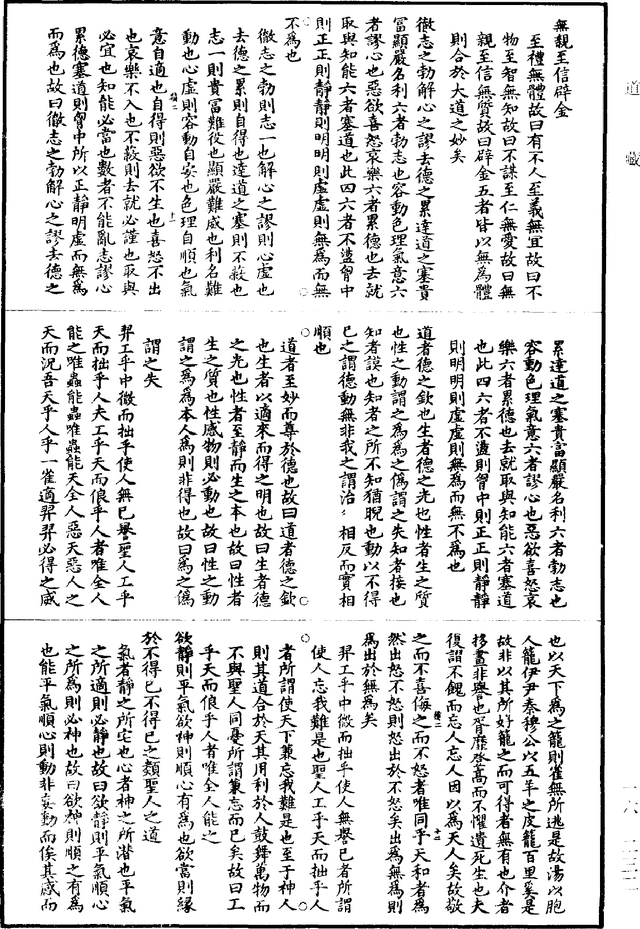 道藏
無親至信辟金
至禮無體故曰有不人至義無宜故曰不
物至智無知故曰不謀至仁無愛故曰無
親至信無質故曰辟金五者皆以無為體
則合於大道之妙矣
徹志之勃解心之謬去德之累達道之塞貴
富顯嚴名利六者勃志也容動色理氣意六
者謬心也惡欲喜怒哀樂六者累德也去就
取與知能六者塞道也此四六者不盪胷中
則正正則靜靜則明明則虛虛則無為而無
不為也
徹志之勃則志一也解心之謬則心虛也
去德之累則自得也達道之塞則不蔽也
志一則貴富難役也顯嚴難威也利名難
動也心虛則容動自安也色理自順也氣
十一
意自適也自得則惡欲不生也喜怒不出
也哀樂不入也不蔽則去就必謹也取與
必宜也知能必當也數者不能亂志謬心
累德塞道則胷中所以正靜明虛而無為
而為也故曰徹志之勃解心之謬去德之
累達道之塞貴富顯嚴名利六者勃志也
容動色理氣意六者謬心也惡欲喜怒哀
樂六者累德也去就取與知能六者塞道
也此四六者不盪則胷中則正正則靜靜
則明明則虛虛則無為而無不為也
道者德之欽也生者德之光也性者生之質
也性之動謂之為為之偽謂之失知者接也
知者謨也知者之所不知猶睨也動以不得
已之謂德動無非我之謂治名相反而實相
順也
道者至妙而尊於德也故曰道者德之欽
也生者以適來而得之明也故曰生者德
之光也性者至靜而生之本也故曰性者
生之質也性感物則必動也故曰性之動
謂之為為本人為則非得也故曰為之偽
謂之失
羿工乎中微而拙乎使人無已譽聖人工乎
天而拙乎人夫工乎天而俍乎人者唯全人
能之唯蟲能蟲唯蟲能天全人惡天惡人之
天而況吾天乎人乎一雀適羿羿必得之威
也以天下為之籠則雀無所逃是故湯以胞
人籠伊尹秦穆公以五羊之皮籠百里奚是
故非以其所好籠之而可得者無有也介者
拸畫非譽也胥靡登高而不懼遺死生也夫
復謵不餽而忘人忘人因以為天人矣故敬
十二
之而不喜侮之而不怒者唯同乎天和者為
然出怒不怒則怒出於不怒矣出為無為則
為出於無為矣
羿工乎中微而拙乎使人無譽已者所謂
使人忘我難是也聖人工乎天而拙乎人
者所謂使天下兼忘我難是也至于神人
則其道合於天其用利於人鼓舞萬物而
不與聖人同憂所謂兼忘而已矣故曰工
乎天而俍乎人者唯全人能之
欲靜則平氣欲神則順心有為也欲當則緣
於不得已不得已之類聖人之道
氣者靜之所宅也心者神之所潛也平氣
之所適則必靜也故曰欲靜則平氣順心
之所為則必神也故曰欲神則順之有為
也能平氣順心則動非妄動而俟其感而